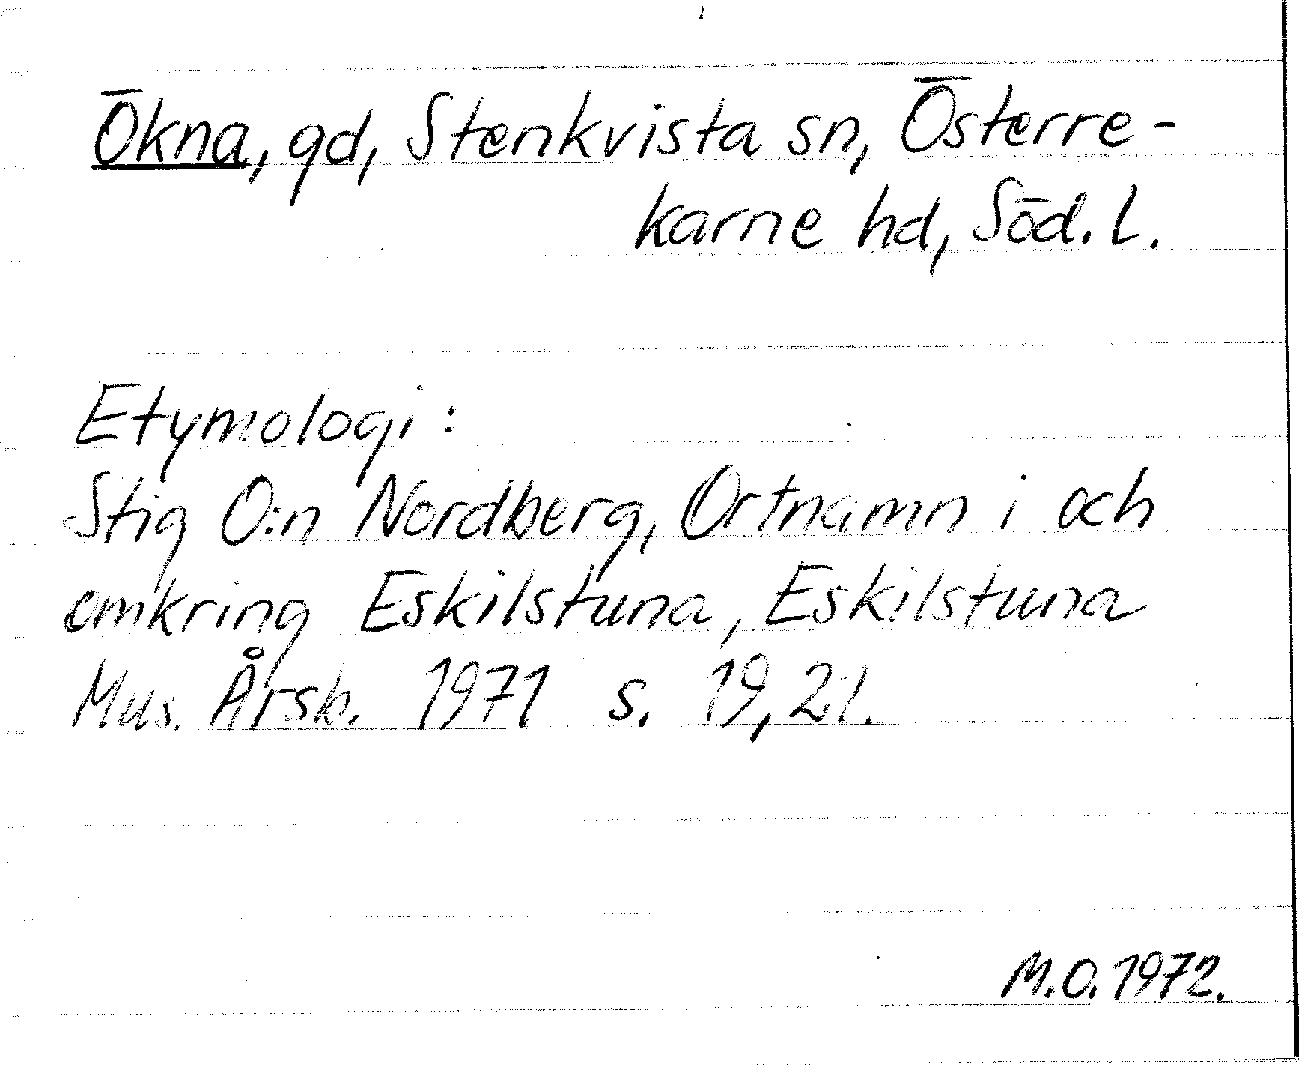 Ökna, gd, Stenkvista sn, Österre-
karne hd, Söd. l.
Etymologi:
Stig O:n Nordberg, Ortnamn i och
omkring Eskilstuna, Eskilstuna
Mus. Årsb. 1971 s. 19, 21.
M.O. 1972.